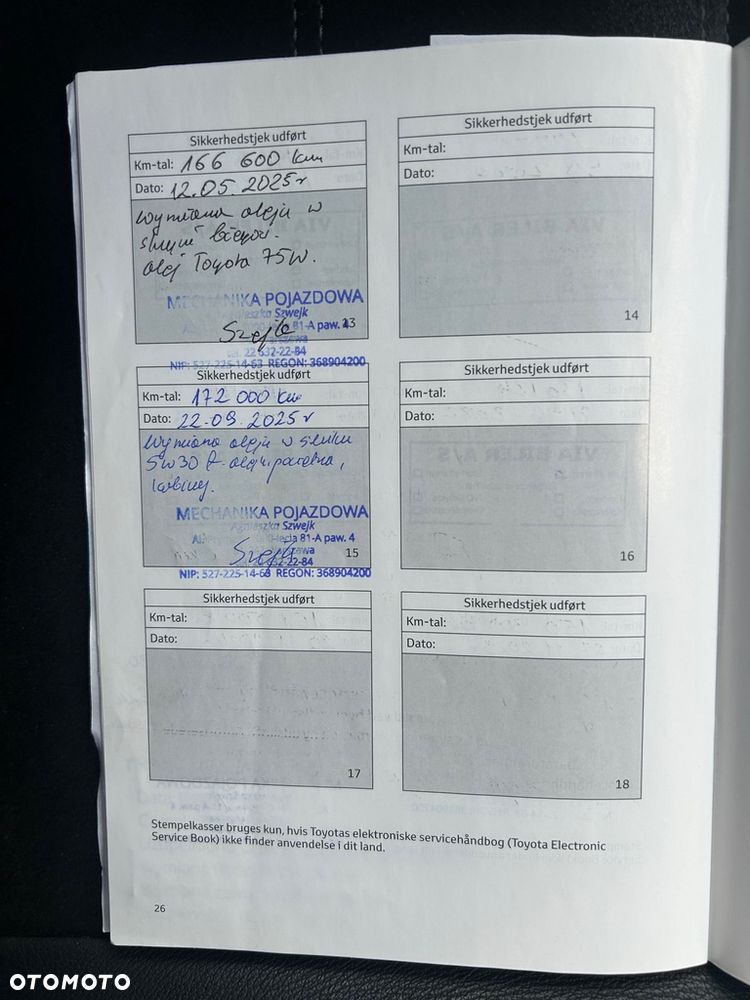 Sikkerhedstjek udført
Km-tal: 166 600 km
Dato: 12.05.2025r
Wymiana oleju w
skrzyni biegów.
olej Toyota 75W.
MECHANIKA POJAZDOWA
Agnieszka Szwejk
81-A paw. 4
13
tel. 22 632-22-84
NIP: 527-225-14-63 REGON: 368904200
Sikkerhedstjek udført
Km-tal:
Dato:
14
Sikkerhedstjek udført
Km-tal: 172 000 km
Dato: 22.09.2025r
Wymiana oleju w silniku
5W30
kabiny.
MECHANIKA POJAZDOWA
Agnieszka Szwejk
81-A paw. 4
15
22-84
NIP: 527-225-14-63 REGON: 368904200
Sikkerhedstjek udført
Km-tal:
Dato:
VIA BILER A/S
16
Sikkerhedstjek udført
Km-tal:
Dato:
17
Sikkerhedstjek udført
Km-tal:
Dato:
18
Stempelkasser bruges kun, hvis Toyotas elektroniske servicehåndbog (Toyota Electronic
Service Book) ikke finder anvendelse i dit land.
26
OTOMOTO